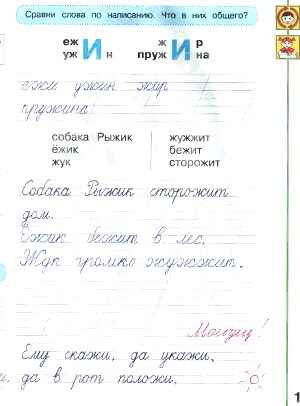 Сравни слова по написанию. Что в них общего?
еж ж р
уж И н пруж И на
ежи ужин жир
пружина
собака Рыжик жужжит
ёжик бежит
жук сторожит
Собака Рыжик сторожит
дом.
Ёжик бежит в лес.
Жук громко жужжит.
Молодец!
Ему скажи, да укажи,
да в рот положи.
1